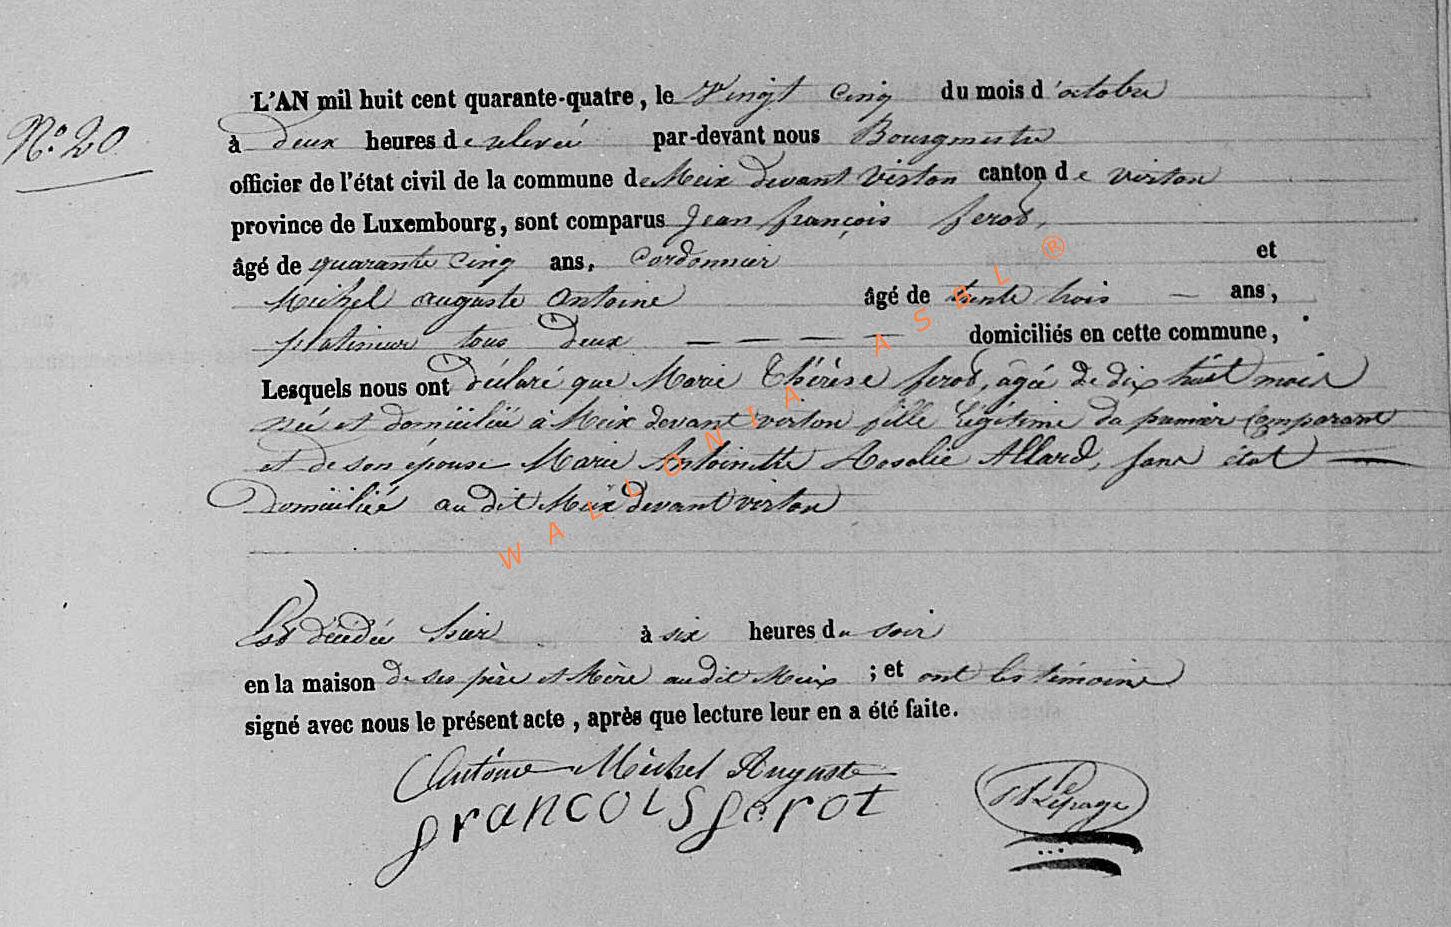 N.o 20
L'AN mil huit cent quarante-quatre, le Vingt Cinq du mois d'octobre
à Deux heures de relevée par-devant nous Bourgmestre
officier de l'état civil de la commune de Meix devant Virton canton de virton
province de Luxembourg, sont comparus Jean françois ferod,
âgé de quarante Cinq ans, Cordonnier et
Michel auguste Antoine âgé de trente trois — ans,
platineur tous Deux — — — — domiciliés en cette commune,
Lesquels nous ont Déclaré que Marie Thérèse ferod, agée de dix huit mois
née et domiciliée à Meix devant virton fille légitime du premier Comparant
et de son épouse Marie Antoinette Rosalie Allard, sans état —
Domiciliée au dit Meix devant virton
Est décédée hier à six heures du soir
en la maison de ses père et Mère audit Meix ; et ont les témoins
signé avec nous le présent acte, après que lecture leur en a été faite.
Antoine Michel Auguste
francois ferot
Lepage
WALLONIA ASBL ®